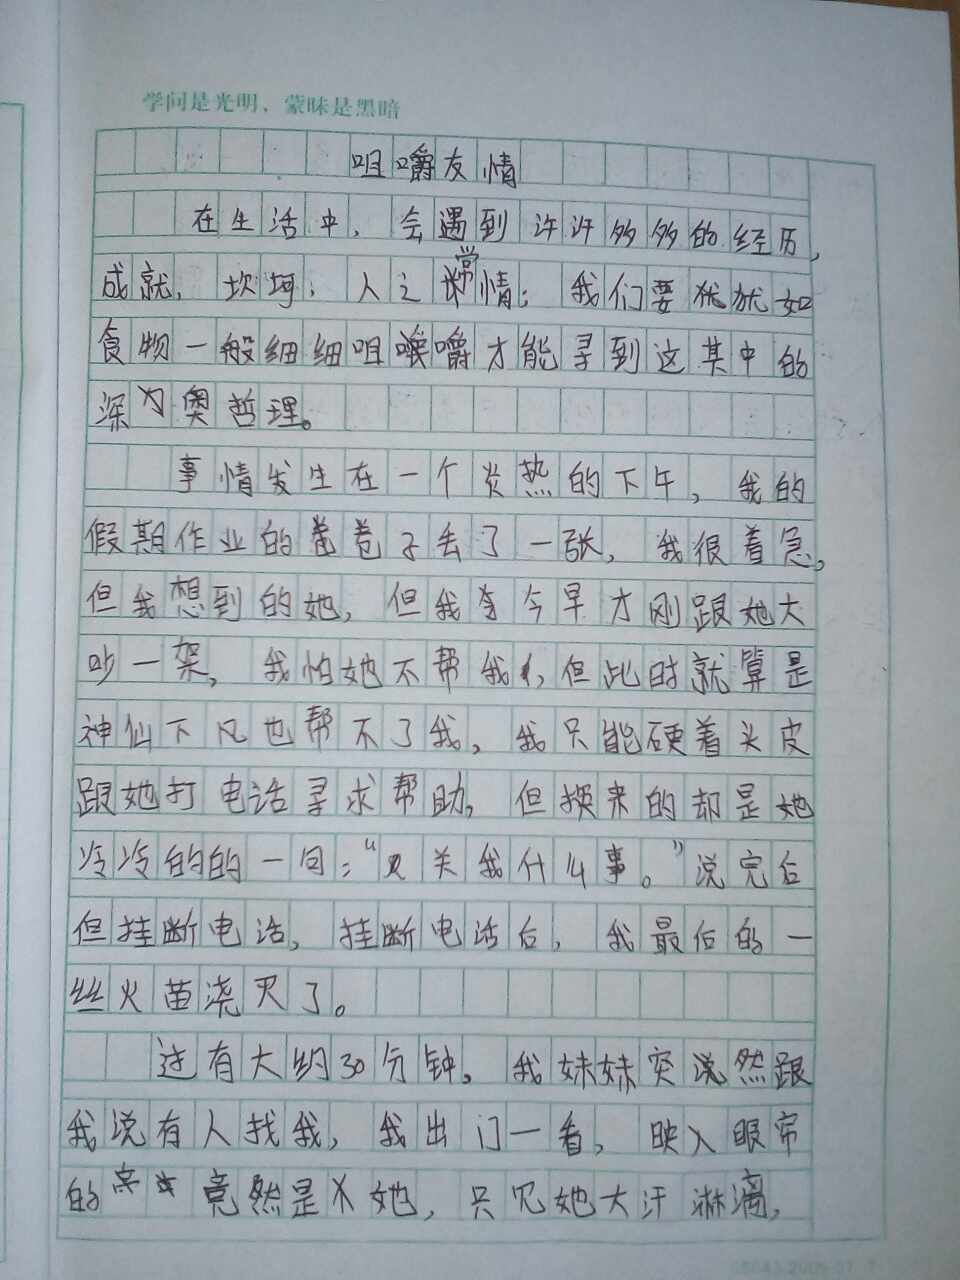 学问是光明、蒙昧是黑暗
咀嚼友情
在生活中，会遇到许许多多的经历，
成就，坎坷，人之常情；我们要犹如
食物一般细细咀嚼才能寻到这其中的
深奥哲理。
事情发生在一个炎热的下午，我的
假期作业的卷卷子丢了一张，我很着急，
但我想到的她，但我今早才刚跟她大
吵一架，我怕她不帮我，但此时就算是
神仙下凡也帮不了我，我只能硬着头皮
跟她打电话寻求帮助，但换来的却是她
冷冷的的一句：“关我什么事。”说完后
但挂断电话，挂断电话后，我最后的一
丝火苗浇灭了。
过有大约30分钟。我妹妹突然跟
我说有人找我，我出门一看，映入眼帘
的竟然是她，只见她大汗淋漓，